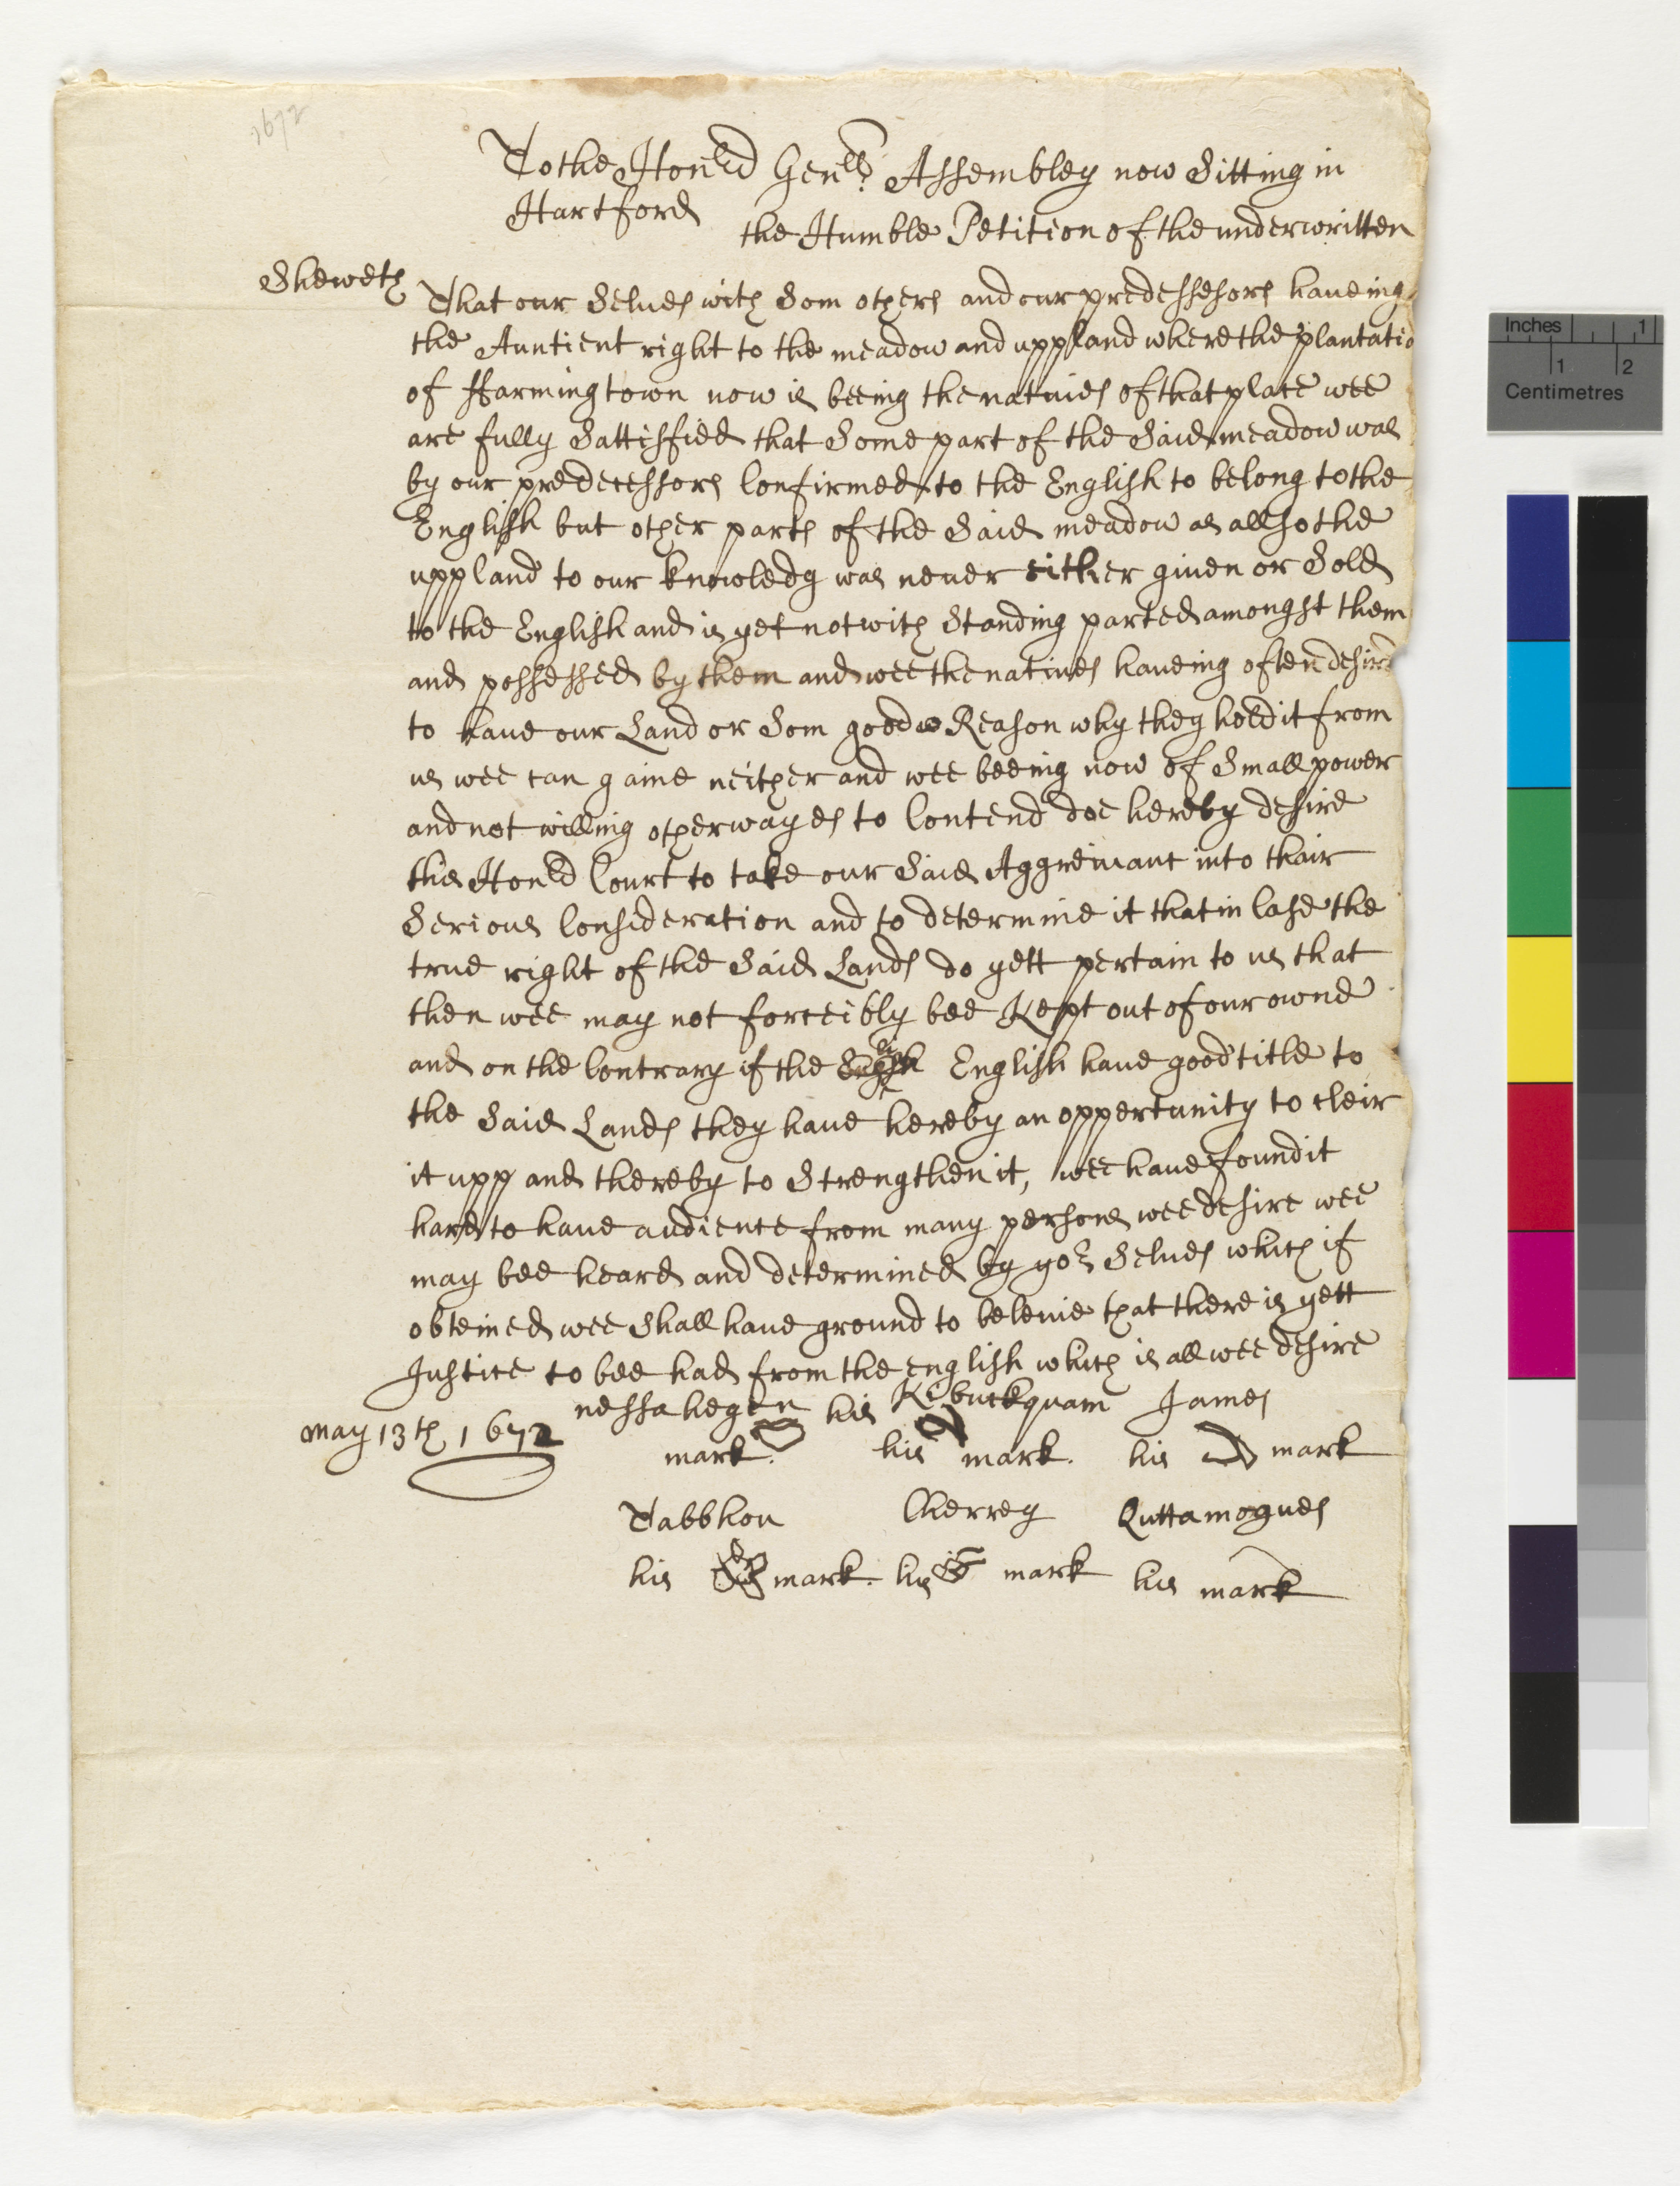 1672
To the Honrd Genrll Assembley now Sitting in
Hartford
the Humble Petition of the underwritten
Sheweth
That our Selues with Som others and our predessesors haueing
the Auntient right to the meadow and uppland where the plantatio
of ffarmingtown now is beeing the natiues of that place wee
are fully Sattisfied that Some part of the Said meadow was
by our predecessors Confirmed to the English to belong to the
English but other parts of the Said meadow as allso the
uppland to our knowledg was neuer either giuen or Sold
to the English and is yet notwith Standing parted amongst them
and possessed by them and wee the natiues haueing often desird
to haue our Land or Som good Reason why they hold it from
us wee can gaine neither and wee beeing now of Small power
and not willing otherwayes to Contend doe hereby desire
this Honrd Court to take our Said Aggreiuanc into thair
Serious Consideration and to determine it that in Case the
true right of the Said Lands do yett pertain to us that
then wee may not forceibly bee Kept out of our owne
and on the Contrary if the English haue good title to
the Said Lands they haue hereby an oppertunity to cleir
it upp and thereby to Strengthen it, wee haue found it
hard to haue audience from many persons wee desire wee
may bee heard and determined by yor Selues which if
obteined wee Shall haue ground to beleuie that there is yett
Justice to bee had from the english which is all wee desire
may 13th 1672
nessahegen his Kebuckquam James
mark. his mark. his mark
Tabbhou Cherrey Quttamogues
his mark. his mark his mark
Inches 1
1 2
Centimetres